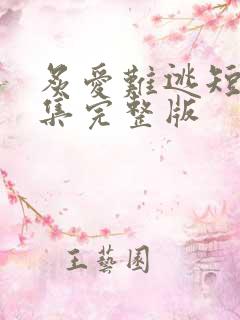 炙愛難逃短
集完整版
王藝園